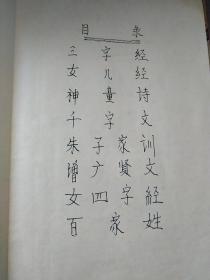 目 录
三字經
女儿經
神童诗
千字文
朱子家训
增广贤文
女四字經
百家姓